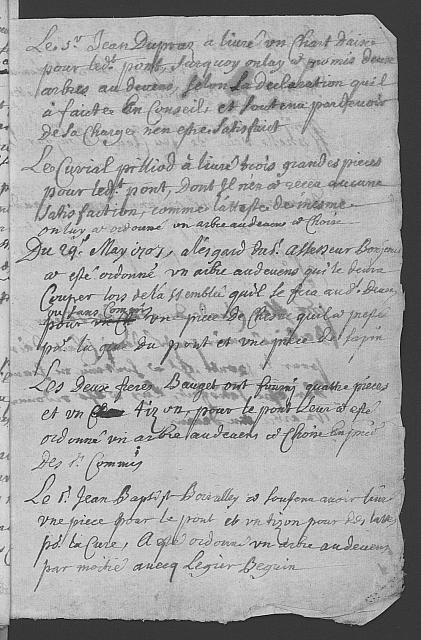 Le Sr. Jean Dupraz a livré un Chart d'aix
pour ledt. pont, surquoy on luy a promis deux
arbres au devens, selon la declaration quil
à faicte en Conseil, et soutenu par devoir
de sa Charge nen estre satisfaict
Le Curial prilliod à livré trois grandes pieces
pour ledt. pont, dont Il nen à receu aucune
satisfaction, comme l'atteste de mesme
on luy a ordonné un arbre au devens a Choise
Du 29e. May 1705, a l'esgard du Sr. assesseur
a esté ordonné un arbre au devens quil le devra
Couper lors de l'assemblée quil se fera aud. Devens
ou sans Commis
pour un piece de Chesne quil a
pr. la du pont et une piece de sapin
Les Deux freres Bauget ont fourny quatre pieces
et un tizon, pour le pont leur a esté
ordonné un arbre au devens a Choise
des Sr. Commis
Le Sr. Jean Baptist a soutenu avoir livré
une piece pour le pont et un tizon pour des lattes
pr. la Cure, A esté ordonné un arbre au devens
par moitié avecq Legier Beguin